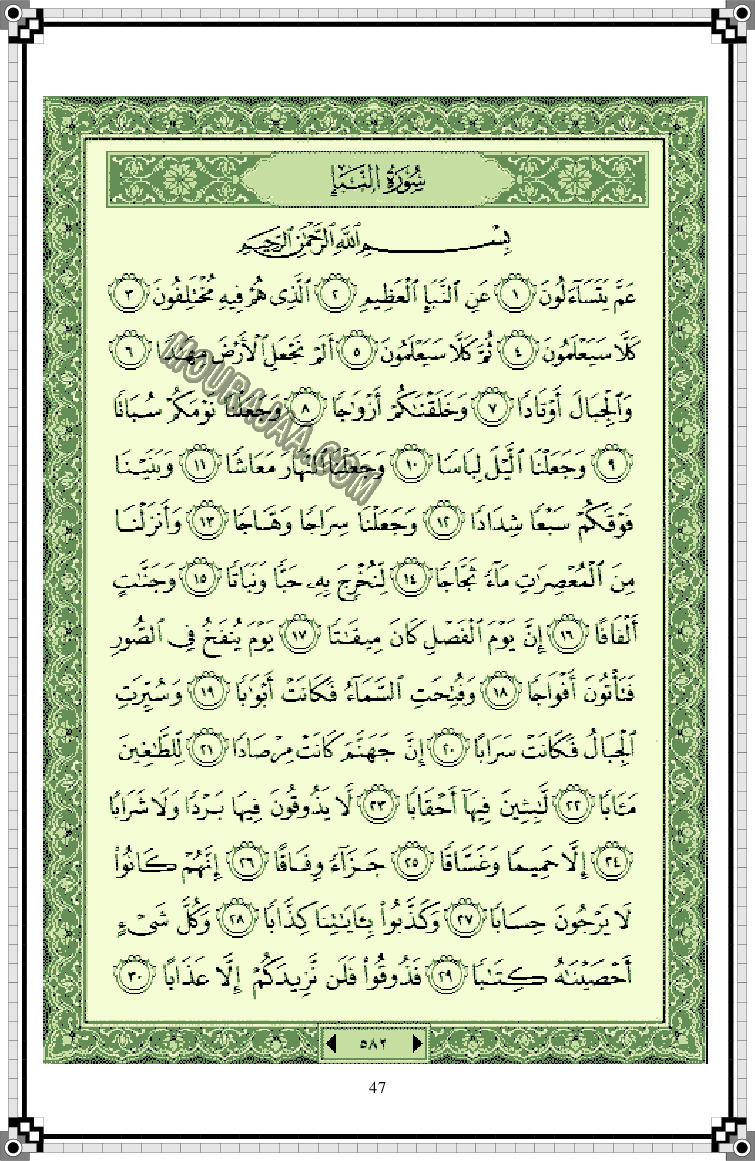 سُورَةُ النَّبَإِ
بِسْمِ ٱللَّهِ ٱلرَّحْمَٰنِ ٱلرَّحِيمِ
عَمَّ يَتَسَآءَلُونَ ١ عَنِ ٱلنَّبَإِ ٱلْعَظِيمِ ٢ ٱلَّذِى هُمْ فِيهِ مُخْتَلِفُونَ ٣
كَلَّا سَيَعْلَمُونَ ٤ ثُمَّ كَلَّا سَيَعْلَمُونَ ٥ أَلَمْ نَجْعَلِ ٱلْأَرْضَ مِهَٰدًا ٦
وَٱلْجِبَالَ أَوْتَادًا ٧ وَخَلَقْنَٰكُمْ أَزْوَٰجًا ٨ وَجَعَلْنَا نَوْمَكُمْ سُبَاتًا
٩ وَجَعَلْنَا ٱلَّيْلَ لِبَاسًا ١٠ وَجَعَلْنَا ٱلنَّهَارَ مَعَاشًا ١١ وَبَنَيْنَا
فَوْقَكُمْ سَبْعًا شِدَادًا ١٢ وَجَعَلْنَا سِرَاجًا وَهَّاجًا ١٣ وَأَنزَلْنَا
مِنَ ٱلْمُعْصِرَٰتِ مَآءً ثَجَّاجًا ١٤ لِّنُخْرِجَ بِهِۦ حَبًّا وَنَبَاتًا ١٥ وَجَنَّٰتٍ
أَلْفَافًا ١٦ إِنَّ يَوْمَ ٱلْفَصْلِ كَانَ مِيقَٰتًا ١٧ يَوْمَ يُنفَخُ فِى ٱلصُّورِ
فَتَأْتُونَ أَفْوَاجًا ١٨ وَفُتِحَتِ ٱلسَّمَآءُ فَكَانَتْ أَبْوَٰبًا ١٩ وَسُيِّرَتِ
ٱلْجِبَالُ فَكَانَتْ سَرَابًا ٢٠ إِنَّ جَهَنَّمَ كَانَتْ مِرْصَادًا ٢١ لِّلطَّٰغِينَ
مَـَٔابًا ٢٢ لَّٰبِثِينَ فِيهَآ أَحْقَابًا ٢٣ لَّا يَذُوقُونَ فِيهَا بَرْدًا وَلَا شَرَابًا
٢٤ إِلَّا حَمِيمًا وَغَسَّاقًا ٢٥ جَزَآءً وِفَاقًا ٢٦ إِنَّهُمْ كَانُوا۟
لَا يَرْجُونَ حِسَابًا ٢٧ وَكَذَّبُوا۟ بِـَٔايَٰتِنَا كِذَّابًا ٢٨ وَكُلَّ شَىْءٍ
أَحْصَيْنَٰهُ كِتَٰبًا ٢٩ فَذُوقُوا۟ فَلَن نَّزِيدَكُمْ إِلَّا عَذَابًا ٣٠
٥٨٢
47
MOURAJAA.COM